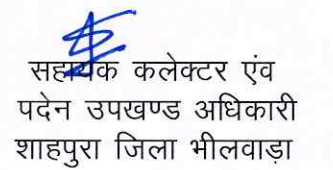 सहायक कलेक्टर एंव
पदेन उपखण्ड अधिकारी
शाहपुरा जिला भीलवाड़ा